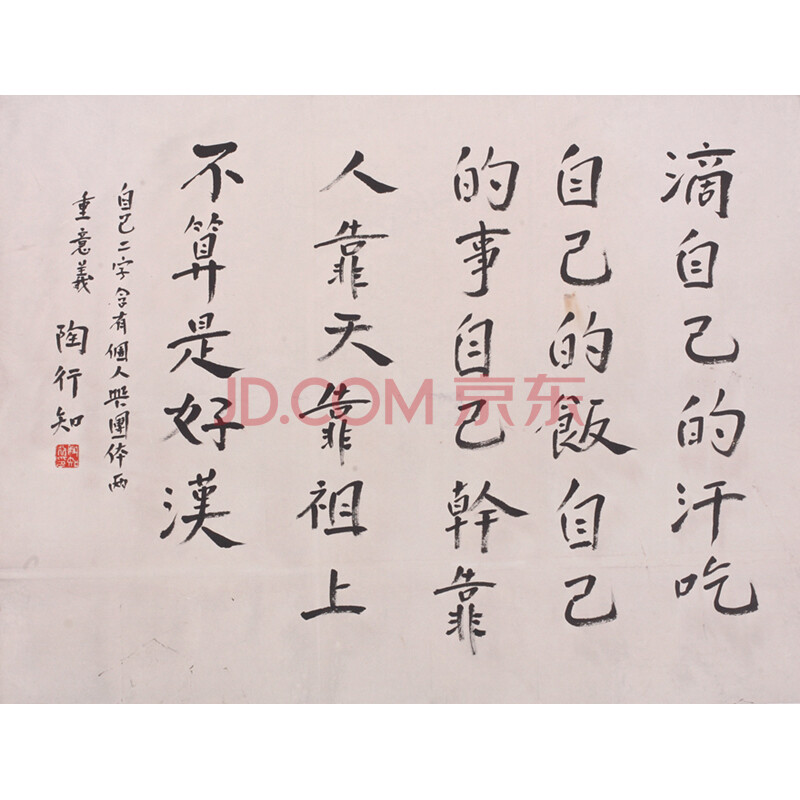 滴自己的汗吃
自己的飯自己
的事自己幹靠
人靠天靠祖上
不算是好漢
自己二字含有個人與團体兩
重意義
陶行知
JD.COM 京东